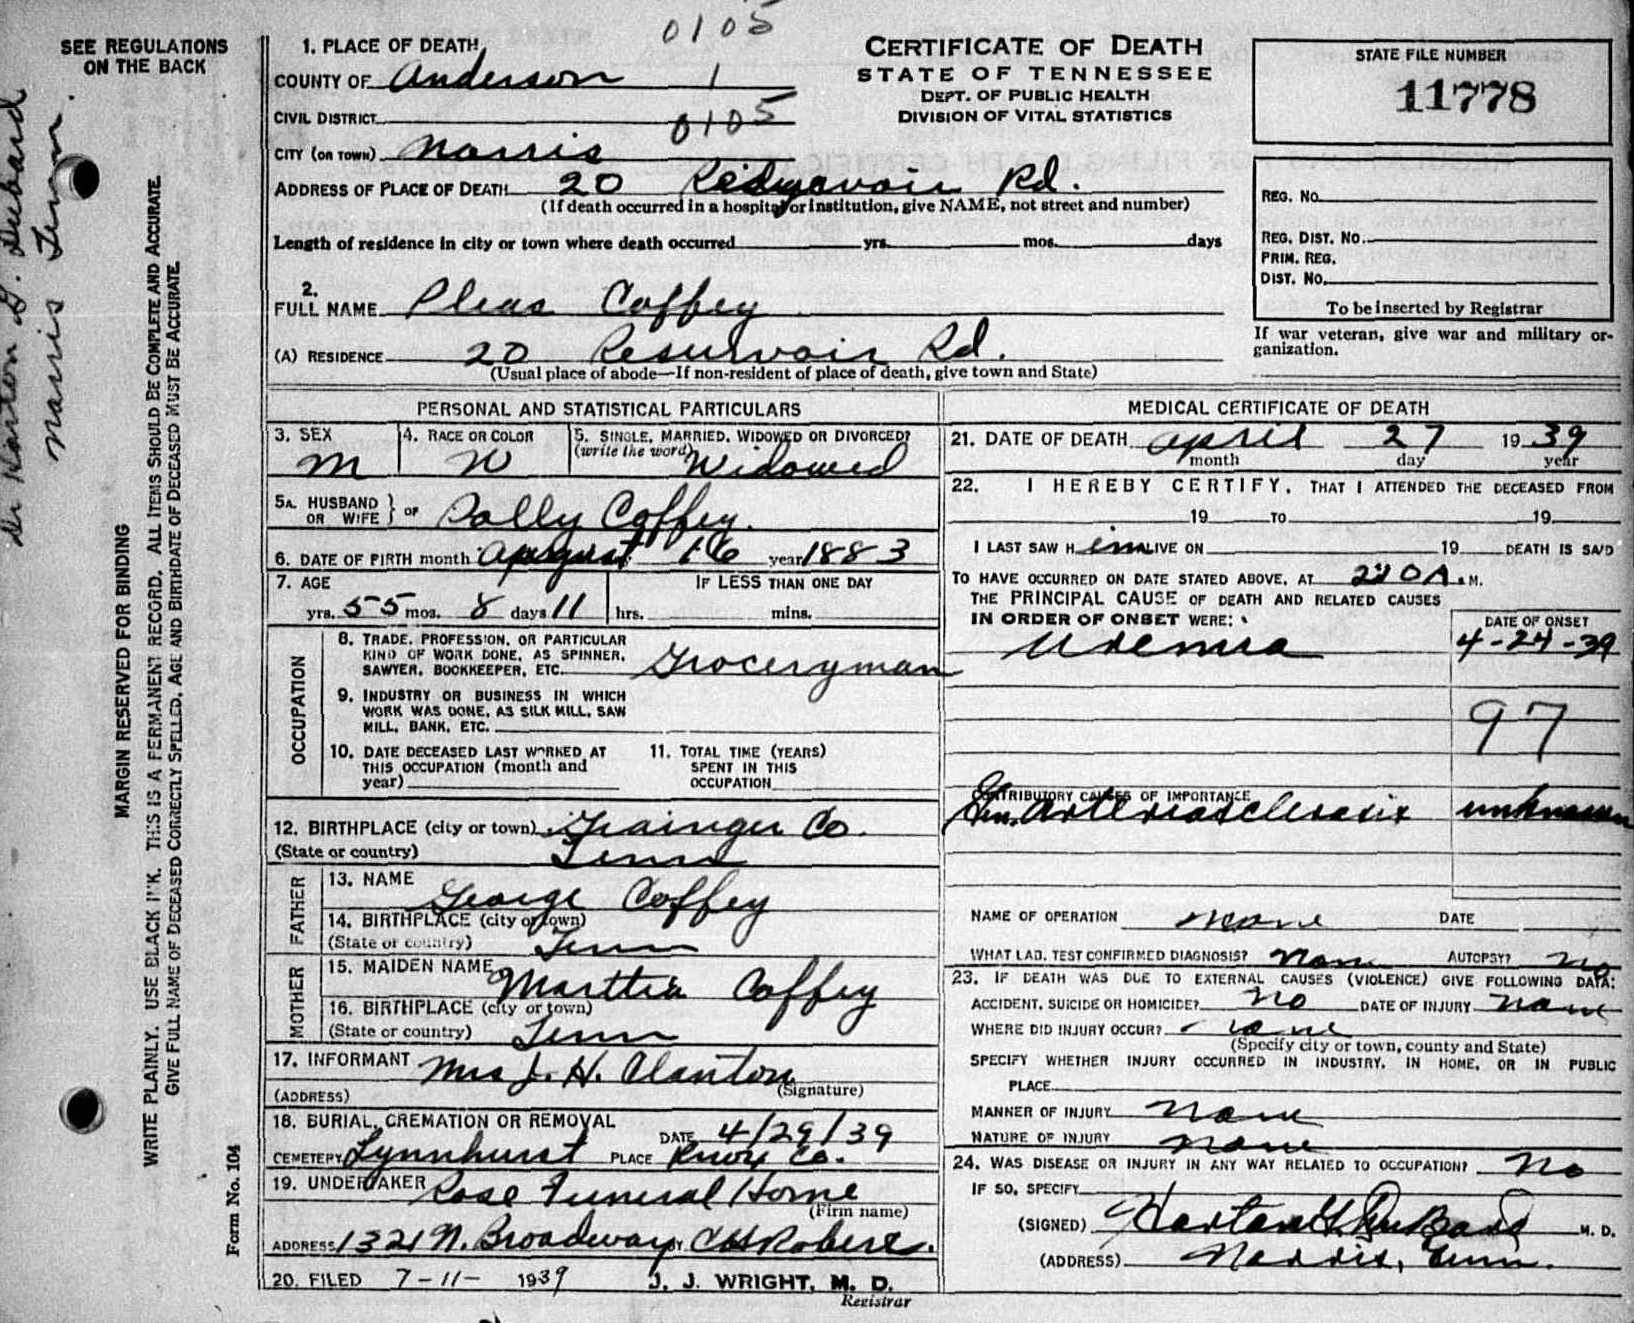 0105
SEE REGULATIONS
ON THE BACK
1. PLACE OF DEATH,
COUNTY OF Anderson 1
CIVIL DISTRICT 0105
CITY (OR TOWN) Norris
ADDRESS OF PLACE OF DEATH 20 Rd.
(If death occurred in a hospital or institution, give NAME, not street and number)
Length of residence in city or town where death occurred yrs. mos. days
CERTIFICATE OF DEATH
STATE OF TENNESSEE
DEPT. OF PUBLIC HEALTH
DIVISION OF VITAL STATISTICS
STATE FILE NUMBER
11778
REG. NO.
REG. DIST. NO.
PRIM. REG.
DIST. NO.
To be inserted by Registrar
If war veteran, give war and military or-
ganization.
2.
FULL NAME Pleas Coffey
(A) RESIDENCE 20 Resurvoir Rd.
(Usual place of abode—If non-resident of place of death, give town and State)
Norris Tenn.
MARGIN RESERVED FOR BINDING
WRITE PLAINLY. USE BLACK INK. THIS IS A PERMANENT RECORD. ALL ITEMS SHOULD BE COMPLETE AND ACCURATE.
GIVE FULL NAME OF DECEASED CORRECTLY SPELLED. AGE AND BIRTHDATE OF DECEASED MUST BE ACCURATE.
Form No. 104
PERSONAL AND STATISTICAL PARTICULARS
3. SEX M
4. RACE OR COLOR W
5. SINGLE, MARRIED, WIDOWED OR DIVORCED?
(write the word) Widowed
5A. HUSBAND OR WIFE } OF Polly Coffey.
6. DATE OF BIRTH month August 16 year 1883
7. AGE IF LESS THAN ONE DAY
yrs. 55 mos. 8 days 11 hrs. mins.
OCCUPATION
8. TRADE, PROFESSION, OR PARTICULAR
KIND OF WORK DONE, AS SPINNER,
SAWYER, BOOKKEEPER, ETC. Groceryman
9. INDUSTRY OR BUSINESS IN WHICH
WORK WAS DONE, AS SILK MILL, SAW
MILL, BANK, ETC.
10. DATE DECEASED LAST WORKED AT
THIS OCCUPATION (month and
year)
11. TOTAL TIME (YEARS)
SPENT IN THIS
OCCUPATION
12. BIRTHPLACE (city or town) Grainger Co.
(State or country) Tenn
FATHER
13. NAME George Coffey
14. BIRTHPLACE (city or town)
(State or country) Tenn
MOTHER
15. MAIDEN NAME Martha Coffey
16. BIRTHPLACE (city or town)
(State or country) Tenn
17. INFORMANT Mrs J. H. Clanton
(ADDRESS) (Signature)
18. BURIAL, CREMATION OR REMOVAL DATE 4/29/39
CEMETERY Lynnhurst PLACE Knox Co.
19. UNDERTAKER Rose Funeral Home
(Firm name)
ADDRESS 1321 N. Broadway BY C H Roberts.
20. FILED 7-11- 1939 J. J. WRIGHT, M. D.
Registrar
MEDICAL CERTIFICATE OF DEATH
21. DATE OF DEATH April 27 1939
month day year
22. I HEREBY CERTIFY, THAT I ATTENDED THE DECEASED FROM
19 TO 19
I LAST SAW H im ALIVE ON 19 DEATH IS SAID
TO HAVE OCCURRED ON DATE STATED ABOVE, AT 220 A. M.
THE PRINCIPAL CAUSE OF DEATH AND RELATED CAUSES
IN ORDER OF ONSET WERE: DATE OF ONSET
Uremia 4-24-39
97
CONTRIBUTORY CAUSES OF IMPORTANCE
Gen. Arteriosclerosis unknown
NAME OF OPERATION none DATE
WHAT LAB. TEST CONFIRMED DIAGNOSIS? None AUTOPSY? no
23. IF DEATH WAS DUE TO EXTERNAL CAUSES (VIOLENCE) GIVE FOLLOWING DATA:
ACCIDENT, SUICIDE OR HOMICIDE? no DATE OF INJURY none
WHERE DID INJURY OCCUR? none
(Specify city or town, county and State)
SPECIFY WHETHER INJURY OCCURRED IN INDUSTRY, IN HOME, OR IN PUBLIC
PLACE
MANNER OF INJURY none
NATURE OF INJURY none
24. WAS DISEASE OR INJURY IN ANY WAY RELATED TO OCCUPATION? No
IF SO, SPECIFY
(SIGNED) M. D.
(ADDRESS) Norris, Tenn.